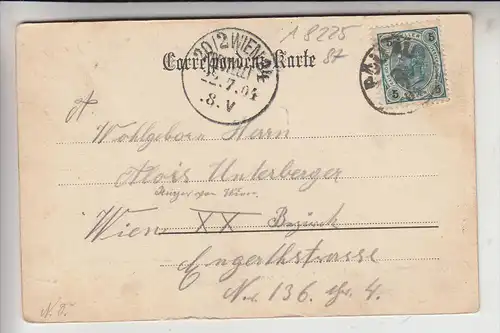 1 8225
St
Correspondenz-Karte
20/2 WIEN
BESTELLT
2.7.04
.8.V
5 5
A.
Wohlgeboren Herrn
Alois Unterberger
Bürger von Wien
Wien XX Bezirk
Engerthstrasse
No. 136. Thr. 4.
N. F.